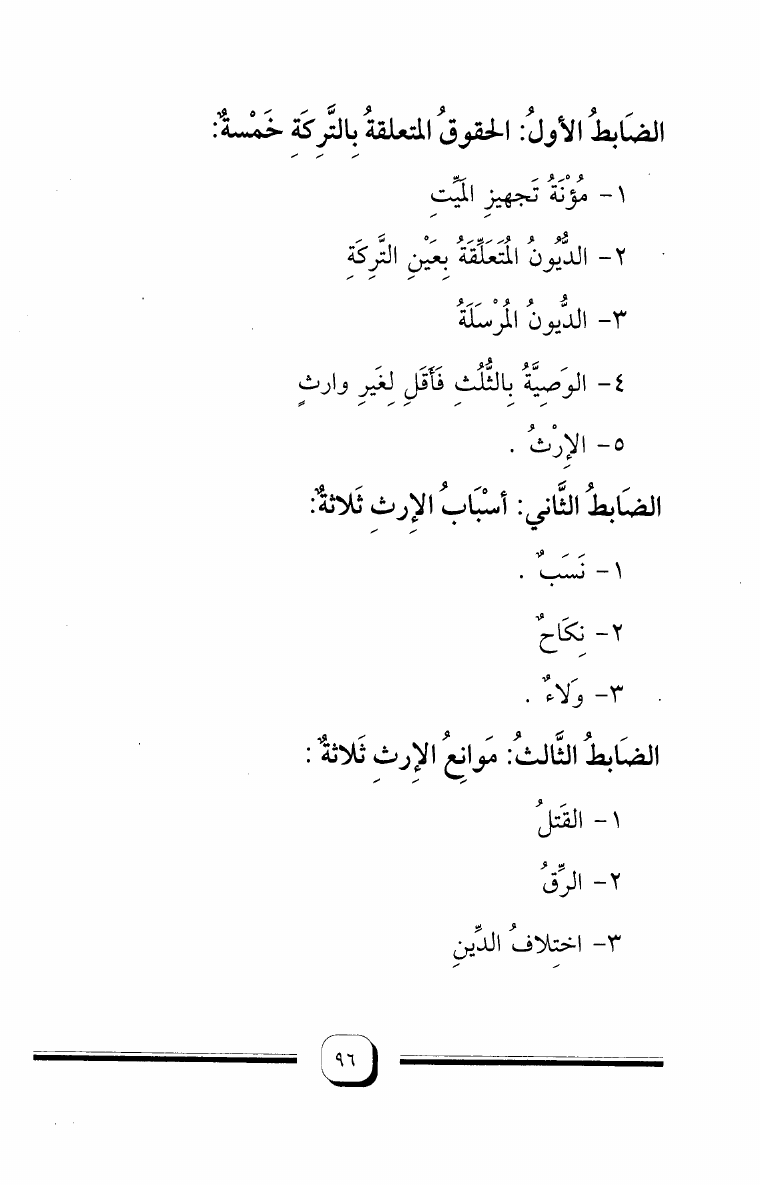 الضَابطُ الأولُ: الحقوقُ المتعلقةُ بِالتَّرِكَةِ خَمْسةٌ:
١- مُؤْنَةُ تَجهيزِ المَيِّتِ
٢- الدُّيُونُ المُتَعَلِّقَةُ بِعَيْنِ التَّرِكَةِ
٣- الدُّيونُ المُرْسَلَةُ
٤- الوَصِيَّةُ بِالثُّلُثِ فَأَقَلِ لِغَيرِ وارثٍ
٥- الإِرْثُ .
الضَابطُ الثَّاني: أسْبَابُ الإِرثِ ثَلاثةٌ:
١- نَسَبٌ .
٢- نِكَاحٌ
٣- وَلاءٌ .
الضَابطُ الثَّالثُ: مَوانِعُ الإِرثِ ثَلاثةٌ :
١- القَتلُ
٢- الرِّقُ
٣- اختِلافُ الدِّينِ
٩٦